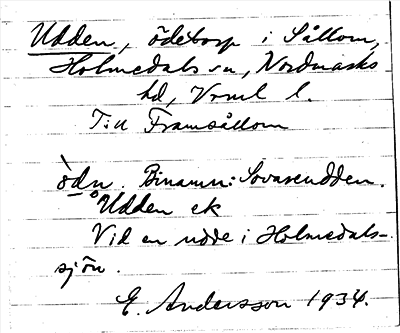 Udden, ödetorp i Sållom,
Holmedals sn, Nordmarks
hd, Vrml l.
Till Framsållom
ödn. Binamn: Sovareudden.
Udden ek
Vid en udde i Holmedals-
sjön.
E. Andersson 1934.